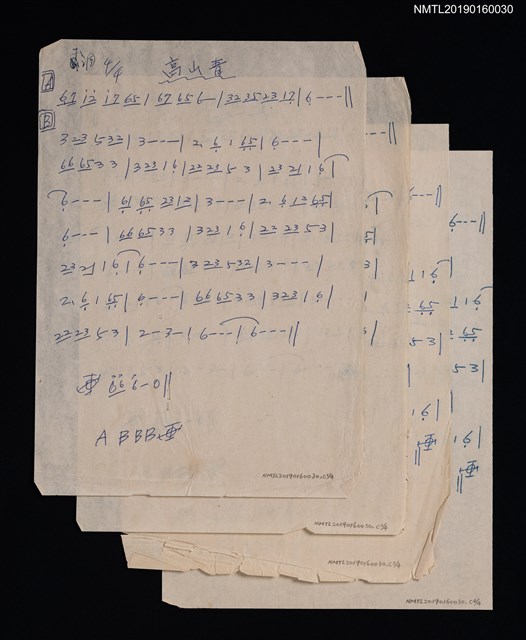 NMTL20190160030
4/4 高山青
A
6̲7̲ 1̲2̲ 1̲7̲ 6̲5̲ | 6̲7̲ 6̲5̲ 6— | 3̲2̲ 3̲5̲ 2̲3̲ 1̲7̲ | 6 - - - ||
B
3 2̲3̲ 5 3̲2̲ | 3 - - - | 2. 6̲ 1 6̲5̲ | 6 - - - |
6̲6̲ 6̲5̲ 3 3 | 3 2̲3̲ 1 6 | 2̲2̲ 2̲3̲ 5 3 | 2̲3̲ 2̲1̲ 1 6 |
6 - - - | 6̲1̲ 6̲5̲ 2̲3̲ 1̲2̲ | 3 - - - | 2. 6̲ 1̲2̲ 6̲5̲ |
6 - - - | 6̲6̲ 6̲5̲ 3 3 | 3 2̲3̲ 1 6 | 2̲2̲ 2̲3̲ 5 3 |
2̲3̲ 2̲1̲ 1 6 | 6 - - - | 3 2̲3̲ 5 3̲2̲ | 3 - - - |
2. 6̲ 1 6̲5̲ | 6 - - - | 6̲6̲ 6̲5̲ 3 3 | 3 2̲3̲ 1 6 |
2̲2̲ 2̲3̲ 5 3 | 2 - 3 - | 6 - - - | 6 - - - ||
6̲6̲ 6 - 0 ||
A B B B
NMTL20190160030.C1/4
NMTL20190160030.C2/4
NMTL20190160030.C3/4
NMTL20190160030.C4/4